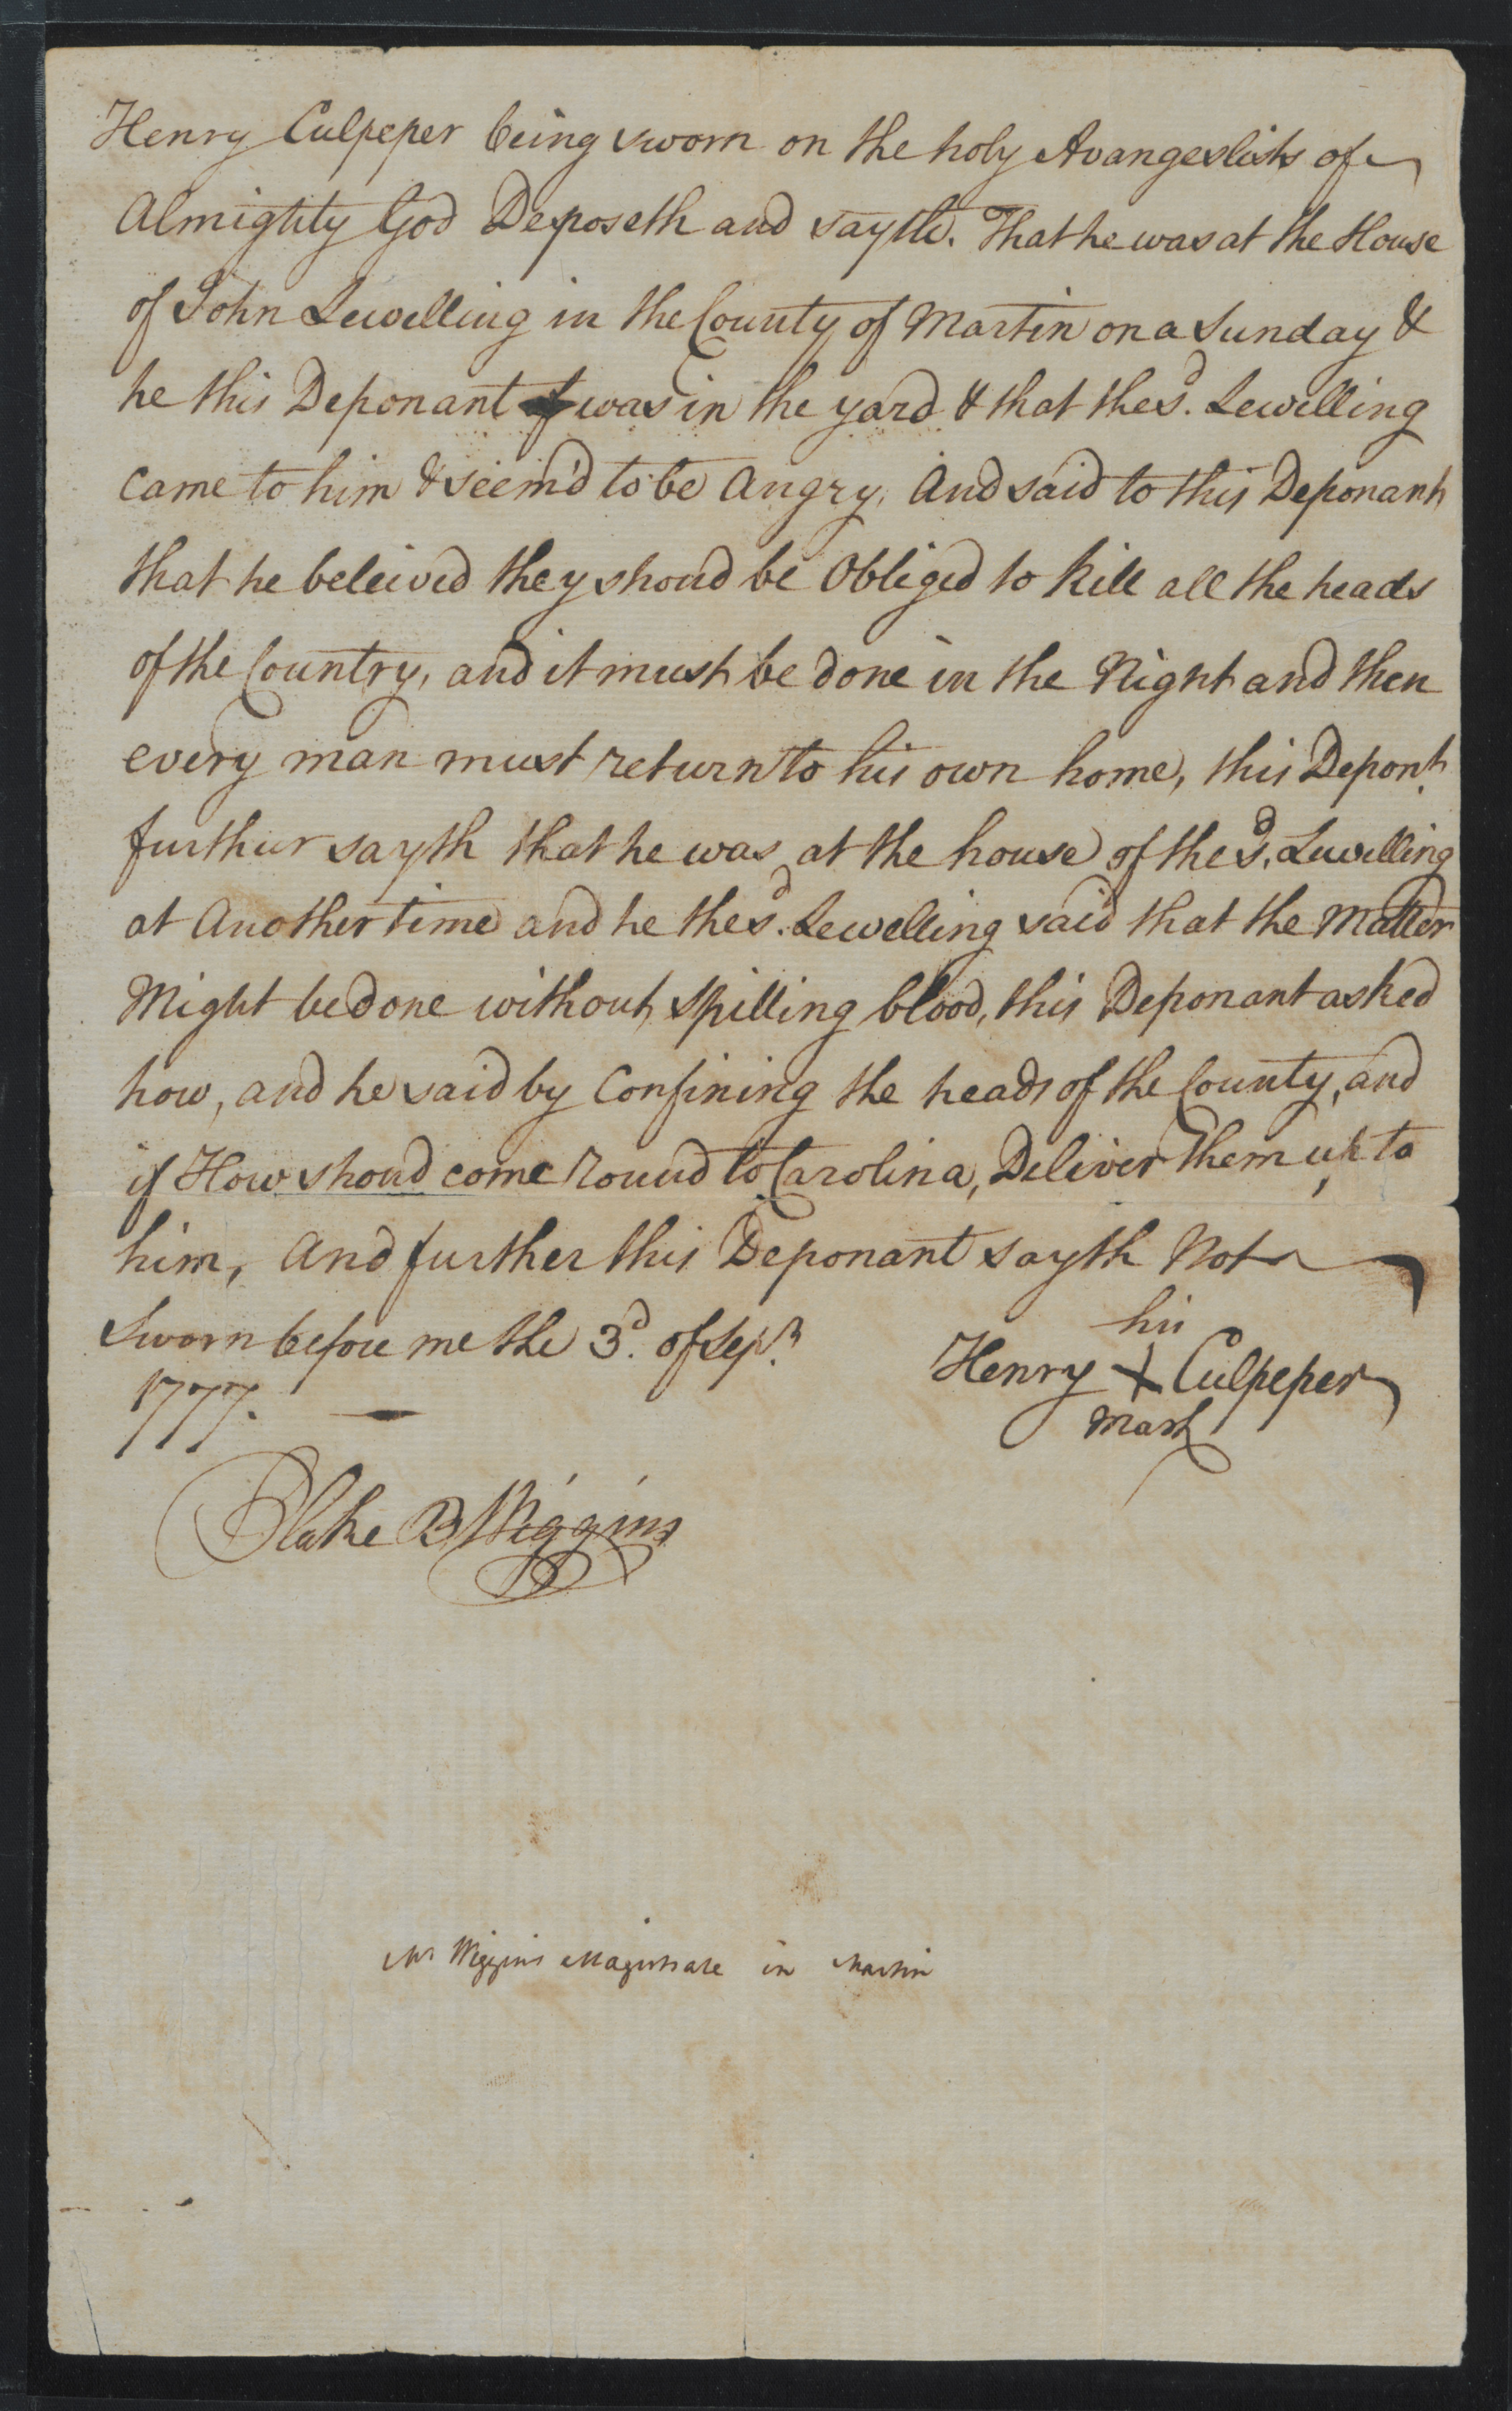 Henry Culpeper being sworn on the holy Avangeslists of
Almighty God Deposeth and sayth. That he was at the House
of John Lewelling in the County of Martin on a Sunday &
he this Deponant was in the yard & that the sd. Lewelling
came to him & seem'd to be Angry, And said to this Deponant
that he beleived they shoud be Obliged to kill all the heads
of the Country, and it must be done in the Night and then
every man must return to his own home, this Depont.
furthur sayth that he was at the house of the sd. Lewelling
at Another time and he the sd. Lewelling said that the Matter
Might be done without spilling blood, this Deponant asked
how, and he said by Confining the heads of the County, and
if How shoud come round to Carolina, Deliver them up to
him, And further this Deponant sayth Not
Sworn before me the 3d. of Sepr.
1777.
his
Henry + Culpeper
mark
Blake B Wiggins
Mr Wiggins Magistrate in Martin